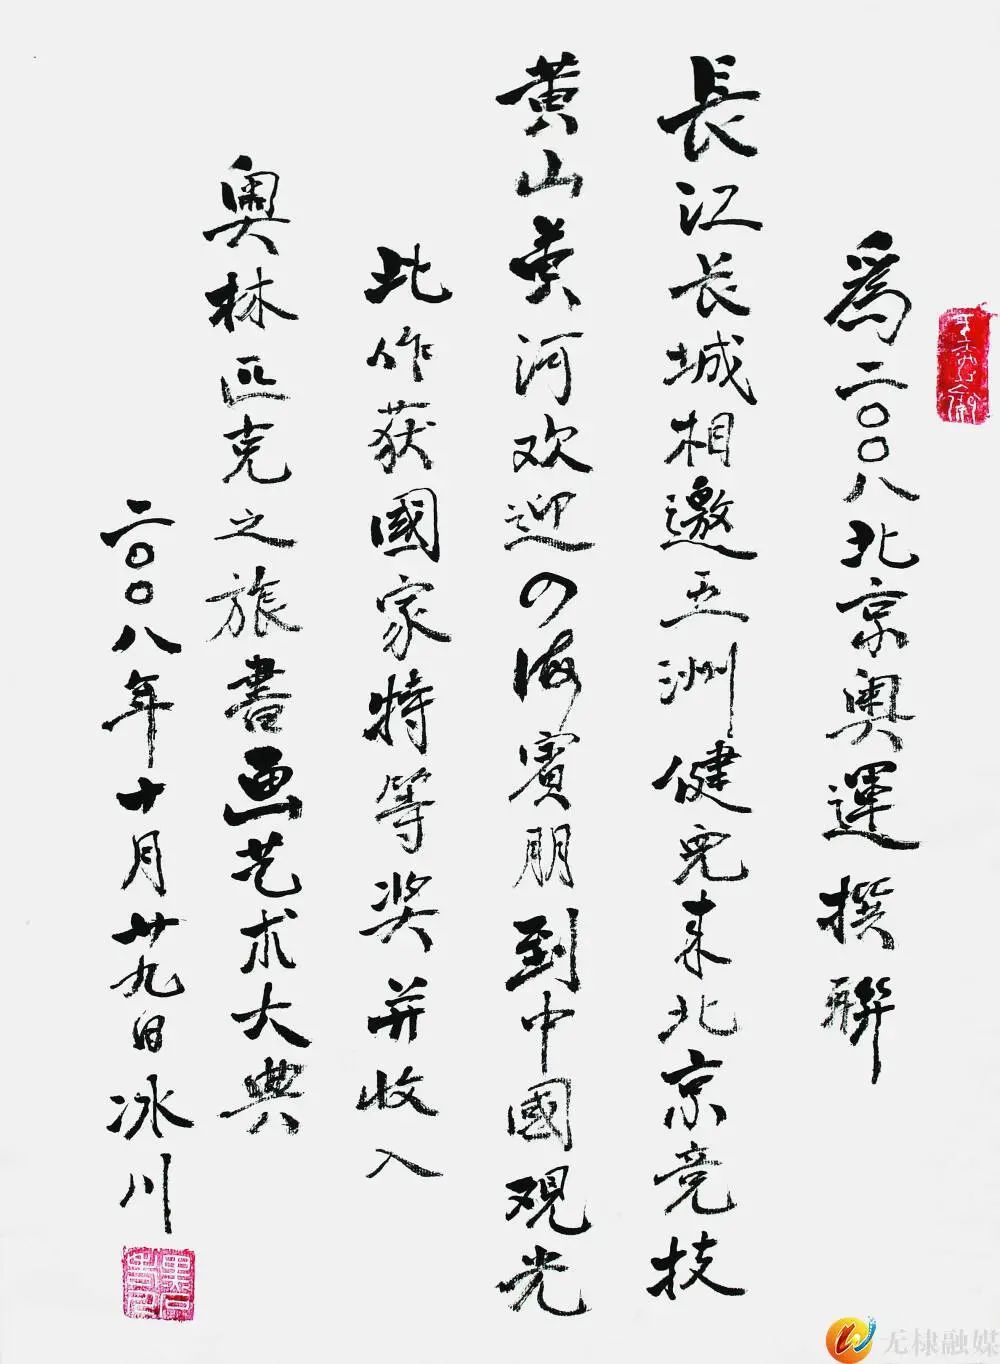 爲二〇〇八北京奧運撰聯
長江长城相邀五洲健兒来北京竞技
黄山黄河欢迎四海賓朋到中國观光
此作获國家特等奖并收入
奥林匹克之旅書画艺术大典
二〇〇八年十月廿九日冰川
无棣融媒